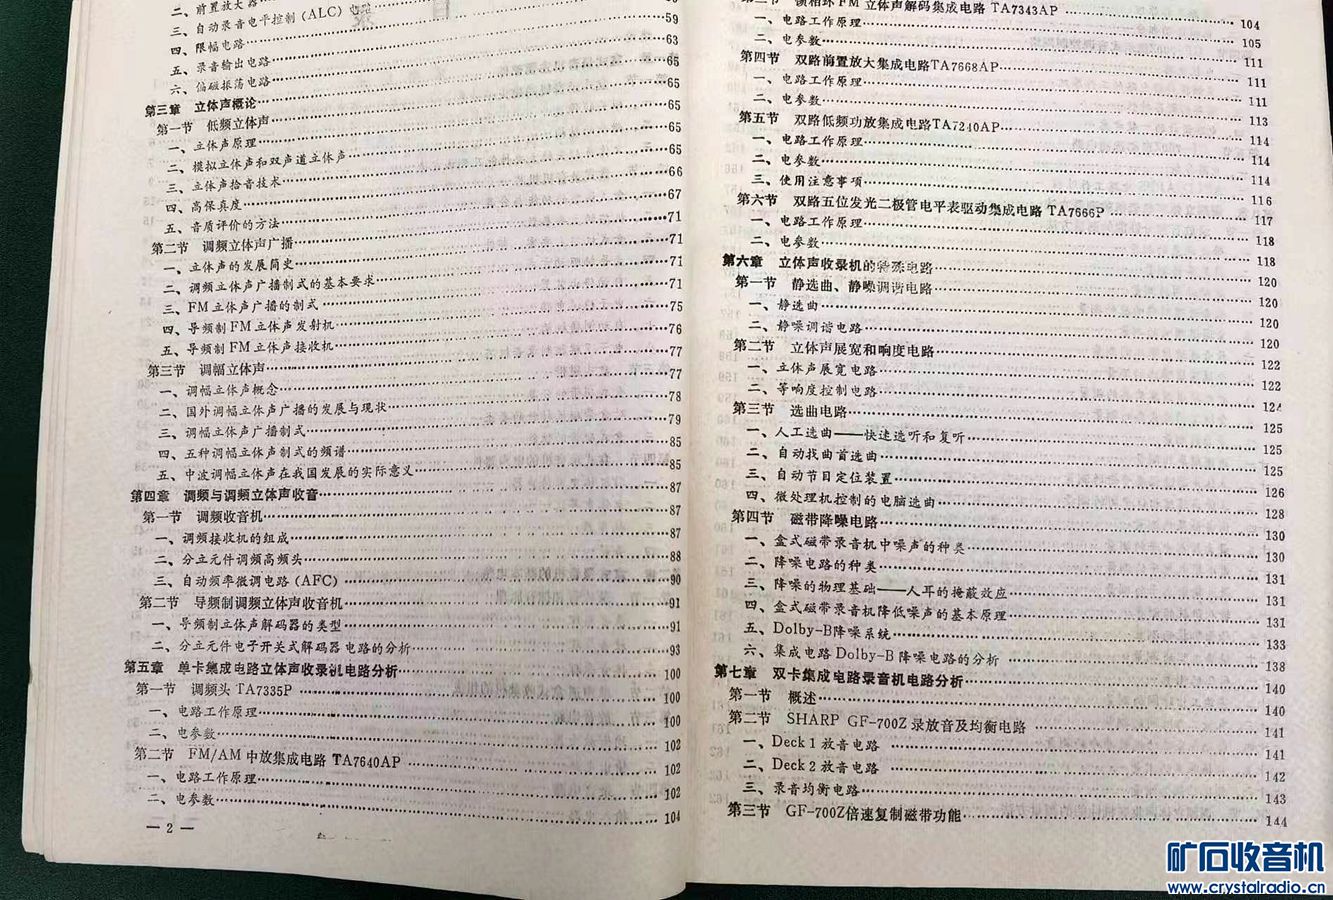 二、前置放大器
三、自动录音电平控制 (ALC)
四、限幅电路
五、录音输出电路……59
六、偏磁振荡电路……63
第三章 立体声概论……65
第一节 低频立体声……65
一、立体声原理……65
二、模拟立体声和双声道立体声……65
三、立体声拾音技术……65
四、高保真度……66
五、音质评价的方法……67
第二节 调频立体声广播……71
一、立体声的发展简史……71
二、调频立体声广播制式的基本要求……71
三、FM立体声广播的制式……71
四、导频制FM立体声发射机……75
五、导频制FM立体声接收机……76
第三节 调幅立体声……77
一、调幅立体声概念……77
二、国外调幅立体声广播的发展与现状……78
三、调幅立体声广播制式……79
四、五种调幅立体声制式的频谱……85
五、中波调幅立体声在我国发展的实际意义……85
第四章 调频与调频立体声收音……87
第一节 调频收音机……87
一、调频接收机的组成……87
二、分立元件调频高频头……88
三、自动频率微调电路 (AFC)……90
第二节 导频制调频立体声收音机……91
一、导频制立体声解码器的类型……91
二、分立元件电子开关式解码器电路的分析……93
第五章 单卡集成电路立体声收录机电路分析……100
第一节 调频头 TA7335P……100
一、电路工作原理……100
二、电参数……102
第二节 FM/AM 中放集成电路 TA7640AP……102
一、电路工作原理……102
二、电参数……104
— 2 —
第三节 锁相环FM立体声解码集成电路 TA7343AP
一、电路工作原理……104
二、电参数……105
第四节 双路前置放大集成电路TA7668AP……111
一、电路工作原理……111
二、电参数……111
第五节 双路低频功放集成电路TA7240AP……113
一、电路工作原理……114
二、电参数……114
三、使用注意事项……114
第六节 双路五位发光二极管电平表驱动集成电路 TA7666P……116
一、电路工作原理……117
二、电参数……118
第六章 立体声收录机的特殊电路……118
第一节 静选曲、静噪调谐电路……120
一、静选曲……120
二、静噪调谐电路……120
第二节 立体声展宽和响度电路……120
一、立体声展宽电路……122
二、等响度控制电路……122
第三节 选曲电路……124
一、人工选曲——快速选听和复听……125
二、自动找曲首选曲……125
三、自动节目定位装置……125
四、微处理机控制的电脑选曲……126
第四节 磁带降噪电路……128
一、盒式磁带录音机中噪声的种类……130
二、降噪电路的种类……131
三、降噪的物理基础——人耳的掩蔽效应……131
四、盒式磁带录音机降低噪声的基本原理……131
五、Dolby-B降噪系统……133
六、集成电路Dolby-B降噪电路的分析……138
第七章 双卡集成电路录音机电路分析……140
第一节 概述……140
第二节 SHARP GF-700Z录放音及均衡电路……141
一、Deck 1 放音电路……141
二、Deck 2 放音电路……142
三、录音均衡电路……143
第三节 GF-700Z倍速复制磁带功能……144
矿石收音机
www.crystalradio.cn